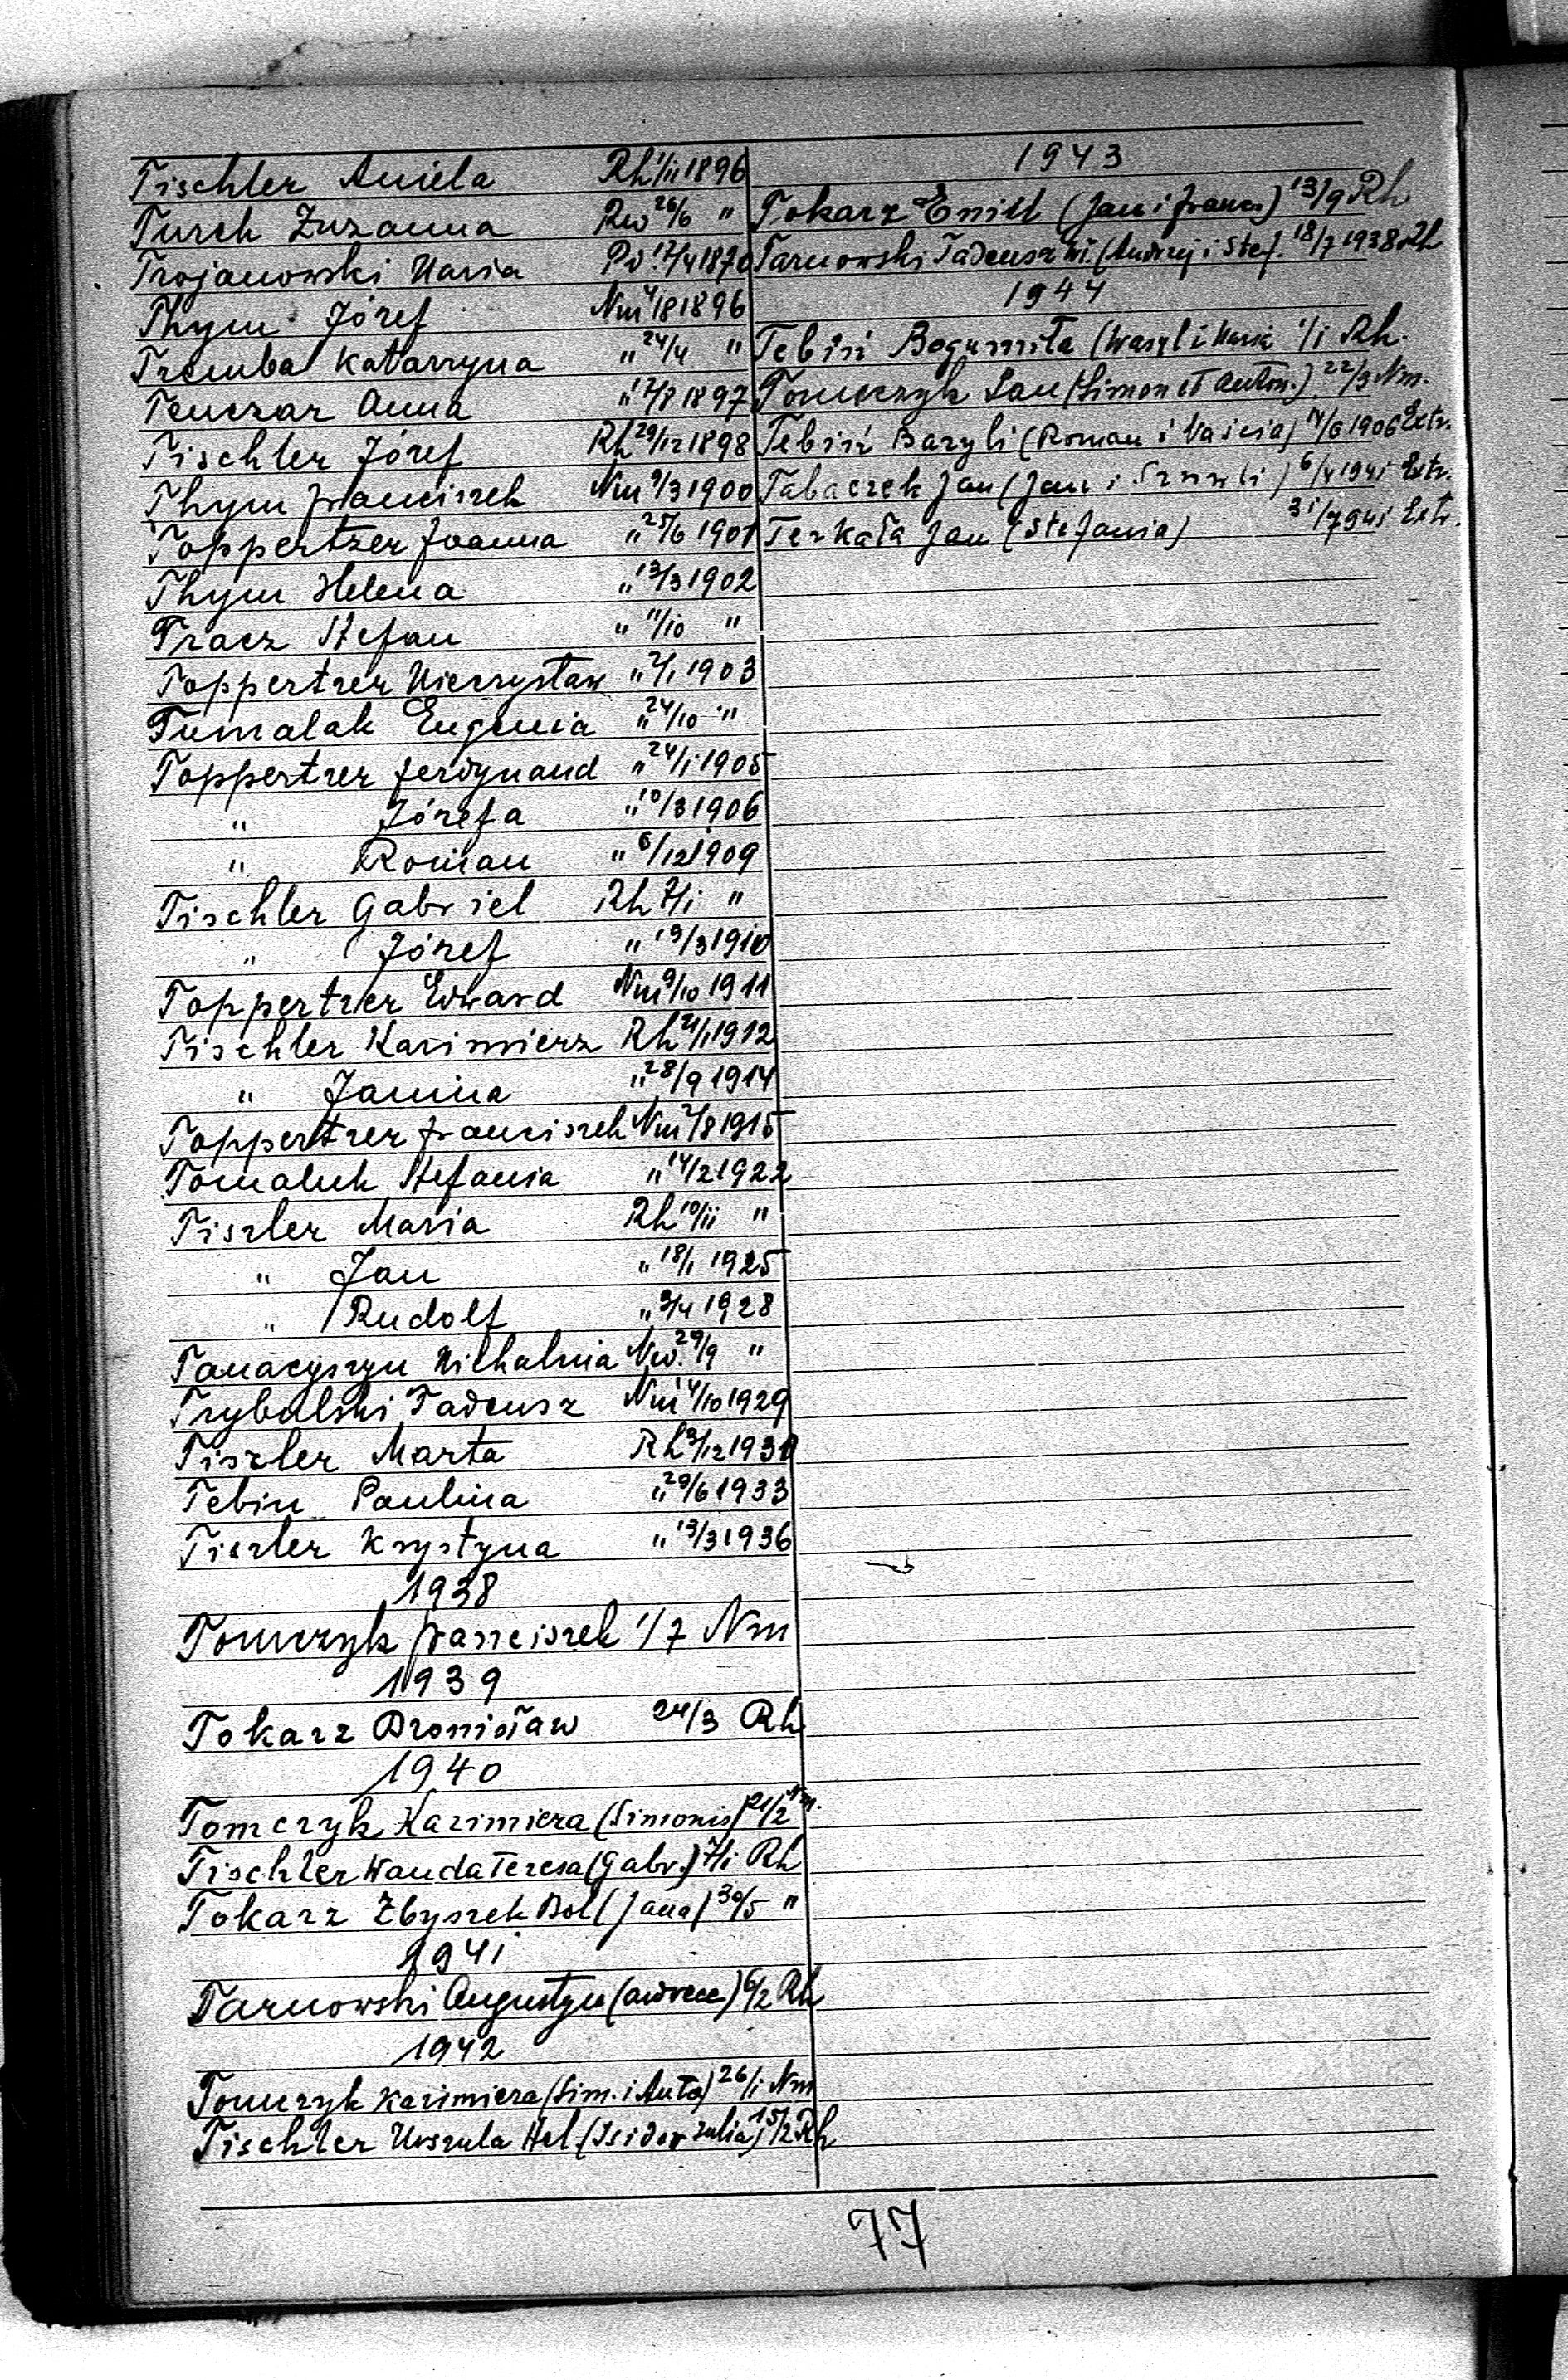 Tischler Aniela Rh 1/11 1896
Turch Zuzanna Rw 26/6 "
Trojanowski Maria 17/4 1870
Thym Józef Nm 4/8 1896
Tremba Katarzyna " 24/4 "
Tenczar Anna " 12/8 1897
Tischler Józef Rh 29/12 1898
Thym franciszek Nm 9/3 1900
Toppertzer Joanna " 25/6 1901
Thym Helena " 13/3 1902
Tracz Stefan " 11/10 "
Toppertzer Mieczysław " 2/1 1903
Tumalak Eugenia " 24/10 "
Toppertzer ferdynand " 24/1 1905
" Józefa " 10/3 1906
" Roman " 6/12 1909
Tischler Gabriel Rh 7/i "
" Józef " 19/3 1910
Toppertzer Edward Nm 9/10 1911
Tischler Kazimierz Rh 21/1 1912
" Janina " 28/9 1914
Toppertzer franciszek Nm 2/8 1915
Tomaluk Stefania " 14/2 1922
Tiszler Maria Rh 10/ii "
" Jan " 18/1 1925
" Rudolf " 9/4 1928
Tanacyszyn Wilhalmia Nw. 29/9 "
Trybalski Tadeusz Nm 14/10 1929
Tiszler Marta Rh 3/12
Tebin Paulina " 29/6 1933
Tiszler Krystyna " 13/3 1936
1938
Tomczyk franciszek 1/7 Nm
1939
Tokarz Bronisław 24/3 Rh
1940
Tomczyk Kazimiera (Simonis) 21/2 Nm.
Tischler Wanda Teresa (Gabr.) 7/i Rh
Tokarz Zbyszek Bol (Jana) 30/5 "
1941
Tarnowski Augustyn 6/2 Rh
1942
Tomczyk Kazimiera (Sim. i Anto) 26/i Nm
Tischler Urszula Hel (Isidor Julia) 15/2 Rh
1943
Tokarz Emill (Jan i franc.) 13/9 Rh
Tarnowski Tadeusz Wł. (Andrzej i Stef. 18/7 1938 Rh
1944
Tebiń Bogumiła (Wasyl i Maria 1/i Rh.
Tomczyk Jan (Simon et Anton.) 22/3 Nm.
Tebiń Bazyli (Roman i Maścia) 14/6 1906 Extr.
Tabaczek Jan (Jan i 6/4 1941 Extr.
Terkała Jan (Stefania) 31/7 941 Extr.
77